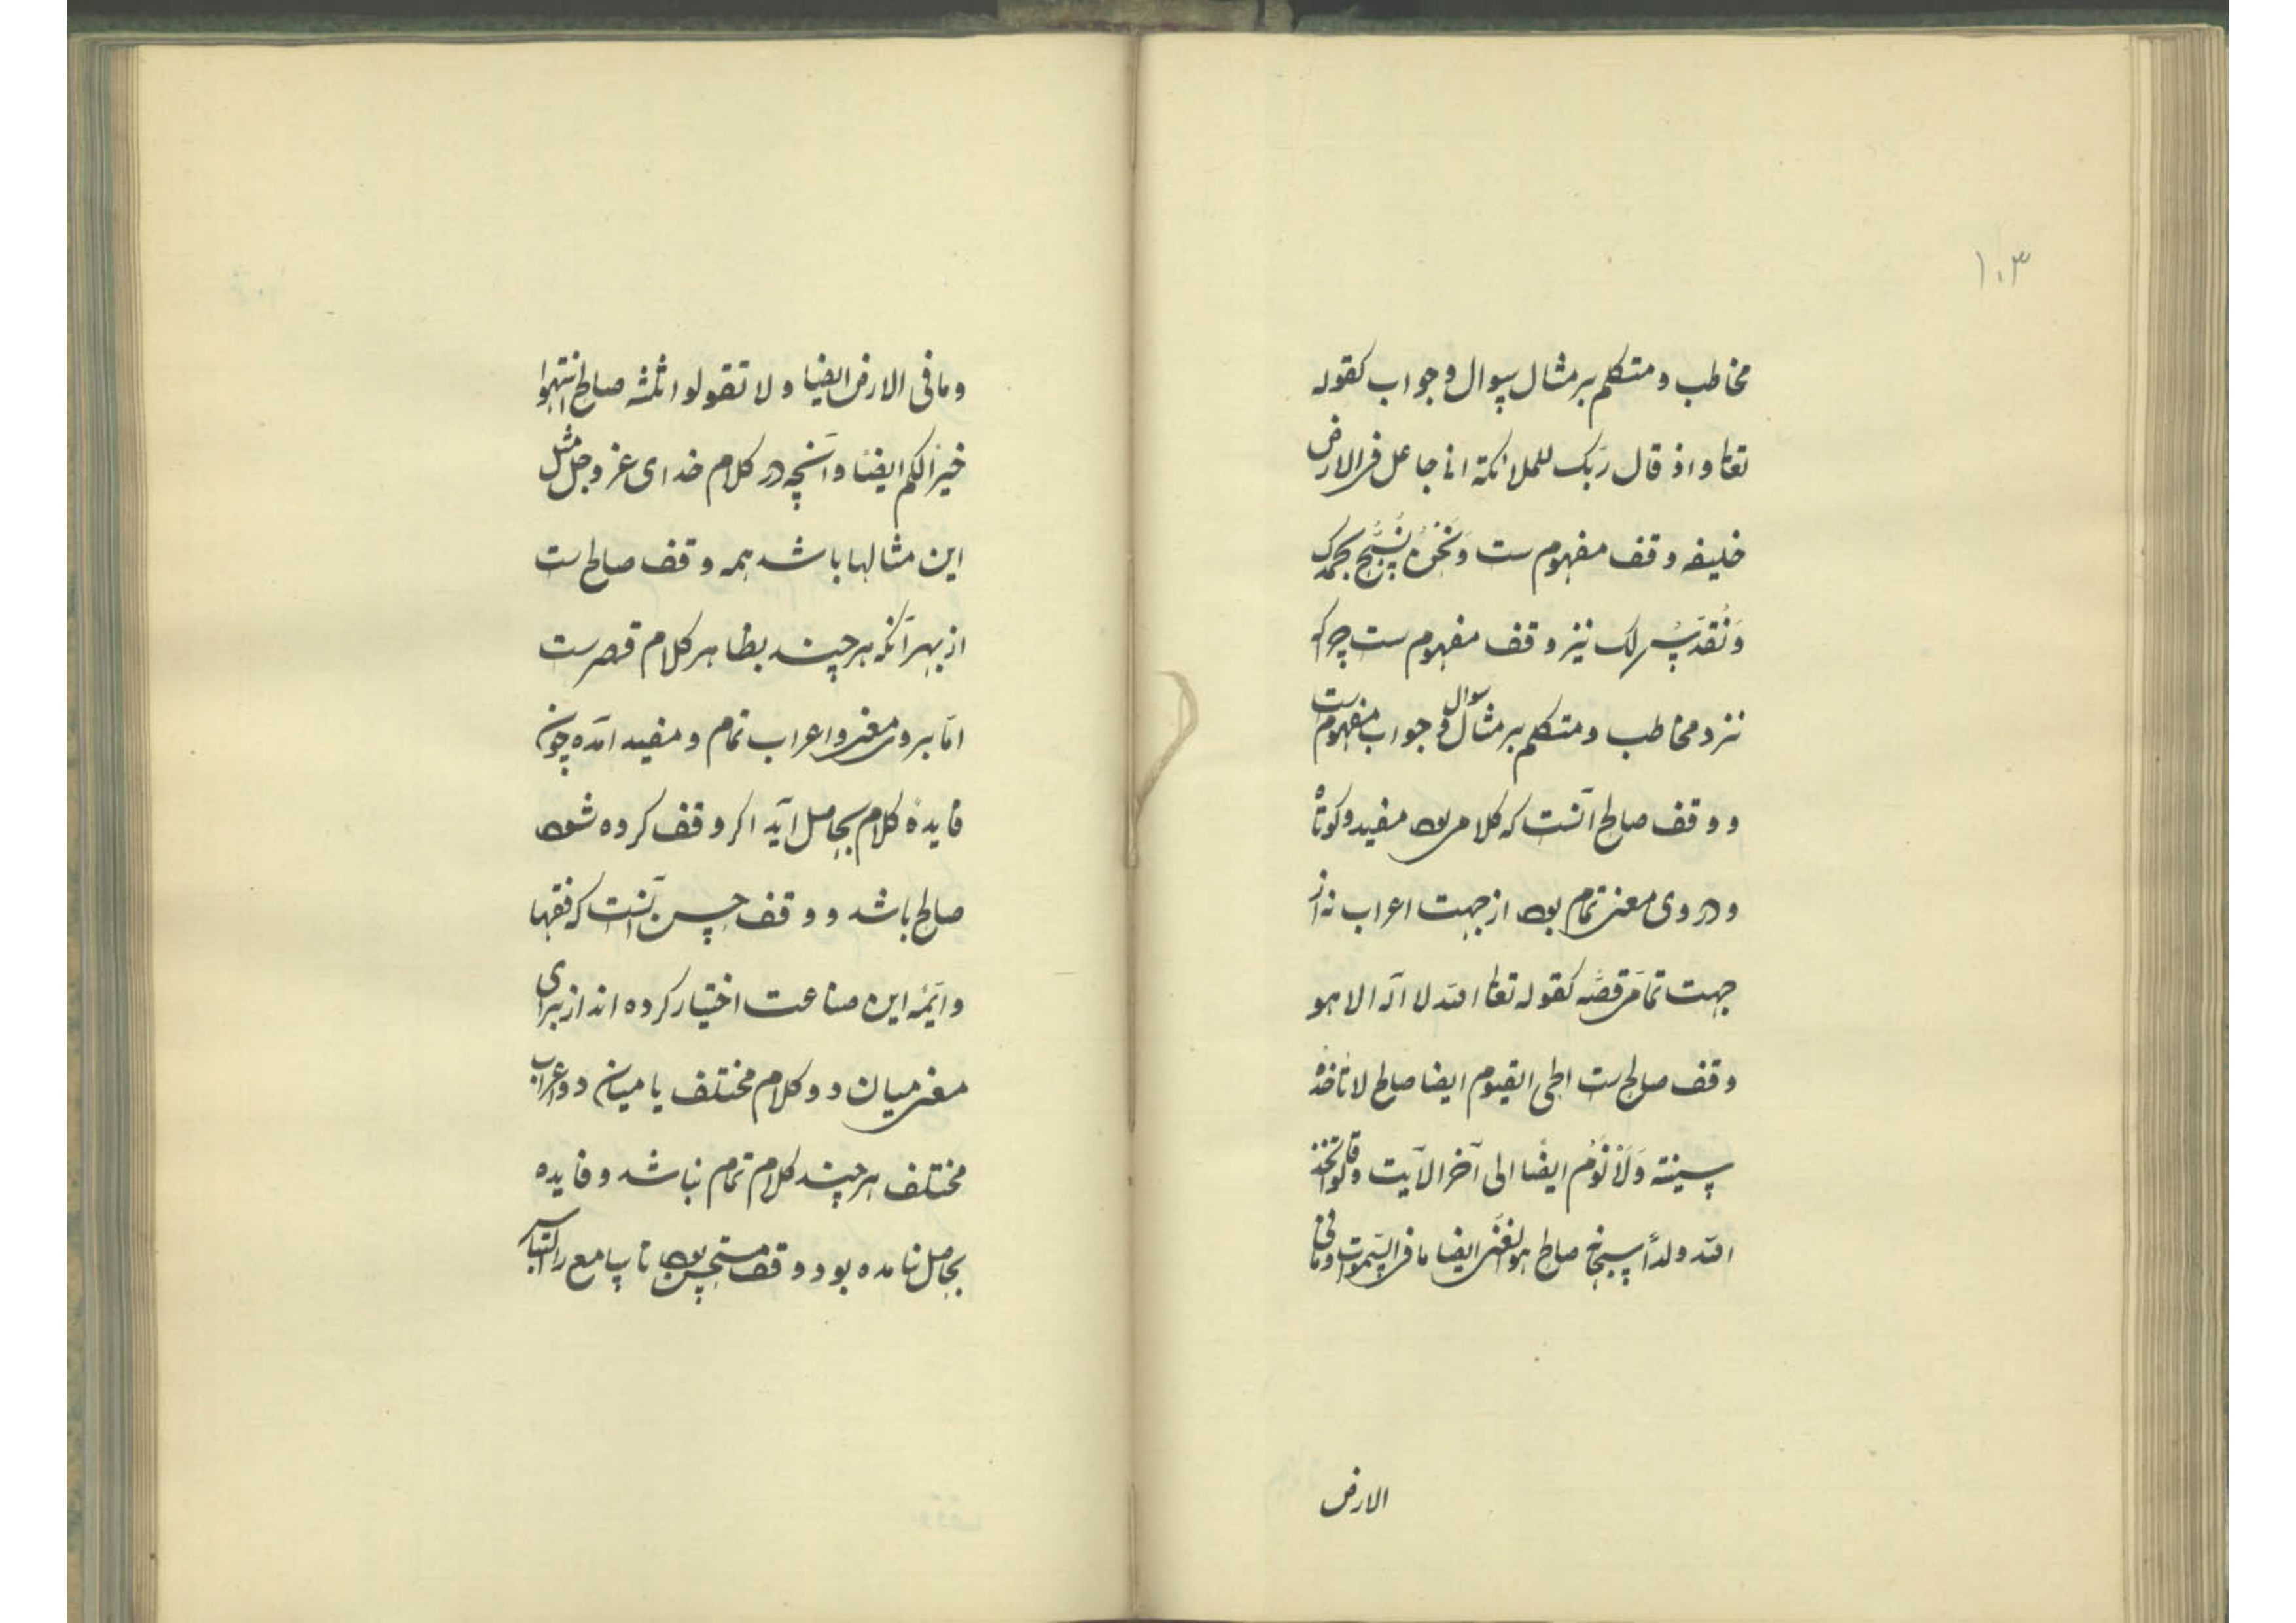 ۱۰۳
مخاطب و متکلم بر مثال سوال و جواب کقوله
تعا و اذ قال ربک للملائکة انی جاعل فی الارض
خلیفه وقف مفهوم ست وَنَحْنُ نُسَبِّحُ بحمدک
وَنُقَدِّسُ لک نیز وقف مفهوم ست چراکه
نزد مخاطب و متکلم بر مثال سوال و جواب مفهوم ست
و وقف صالح آنست که کلامی بود مفید و کوتاه
و در وی معنی تمام بود از جهت اعراب نه از
جهت تمامی قصّه کقوله تعا الله لا اله الا هو
وقف صالح ست الحی القیوم ایضا صالح لا تاخذه
سِنة وَلَا نَوْم ایضا الی آخر الآیت وقالوا اتخذ
الله ولداً سبحانه صالح هو الغنی ایضا ما فی السموات وما فی
الارض
وما فی الارض ایضا و لا تقولوا ثلثه صالح انتهوا
خیراً لکم ایضا و آنچه در کلام خدای عز و جل مثل
این مثالها باشد همه وقف صالح ست
از بهر آنکه هر چند بظاهر کلام قصر ست
امّا بروی معنی و اعراب تمام و مفید آمده چون
فایدهٔ کلام بحاصل آید اکر وقف کرده شود
صالح باشد و وقف حسن آنست که فقها
و ایمّه این صناعت اختیار کرده اند از برای
معنی میان دو کلام مختلف یا میان دو اعراب
مختلف هر چند کلام تمام نباشد و فایده
بحاصل نامده بود و وقف مستحسن بود تا سامع را التباس